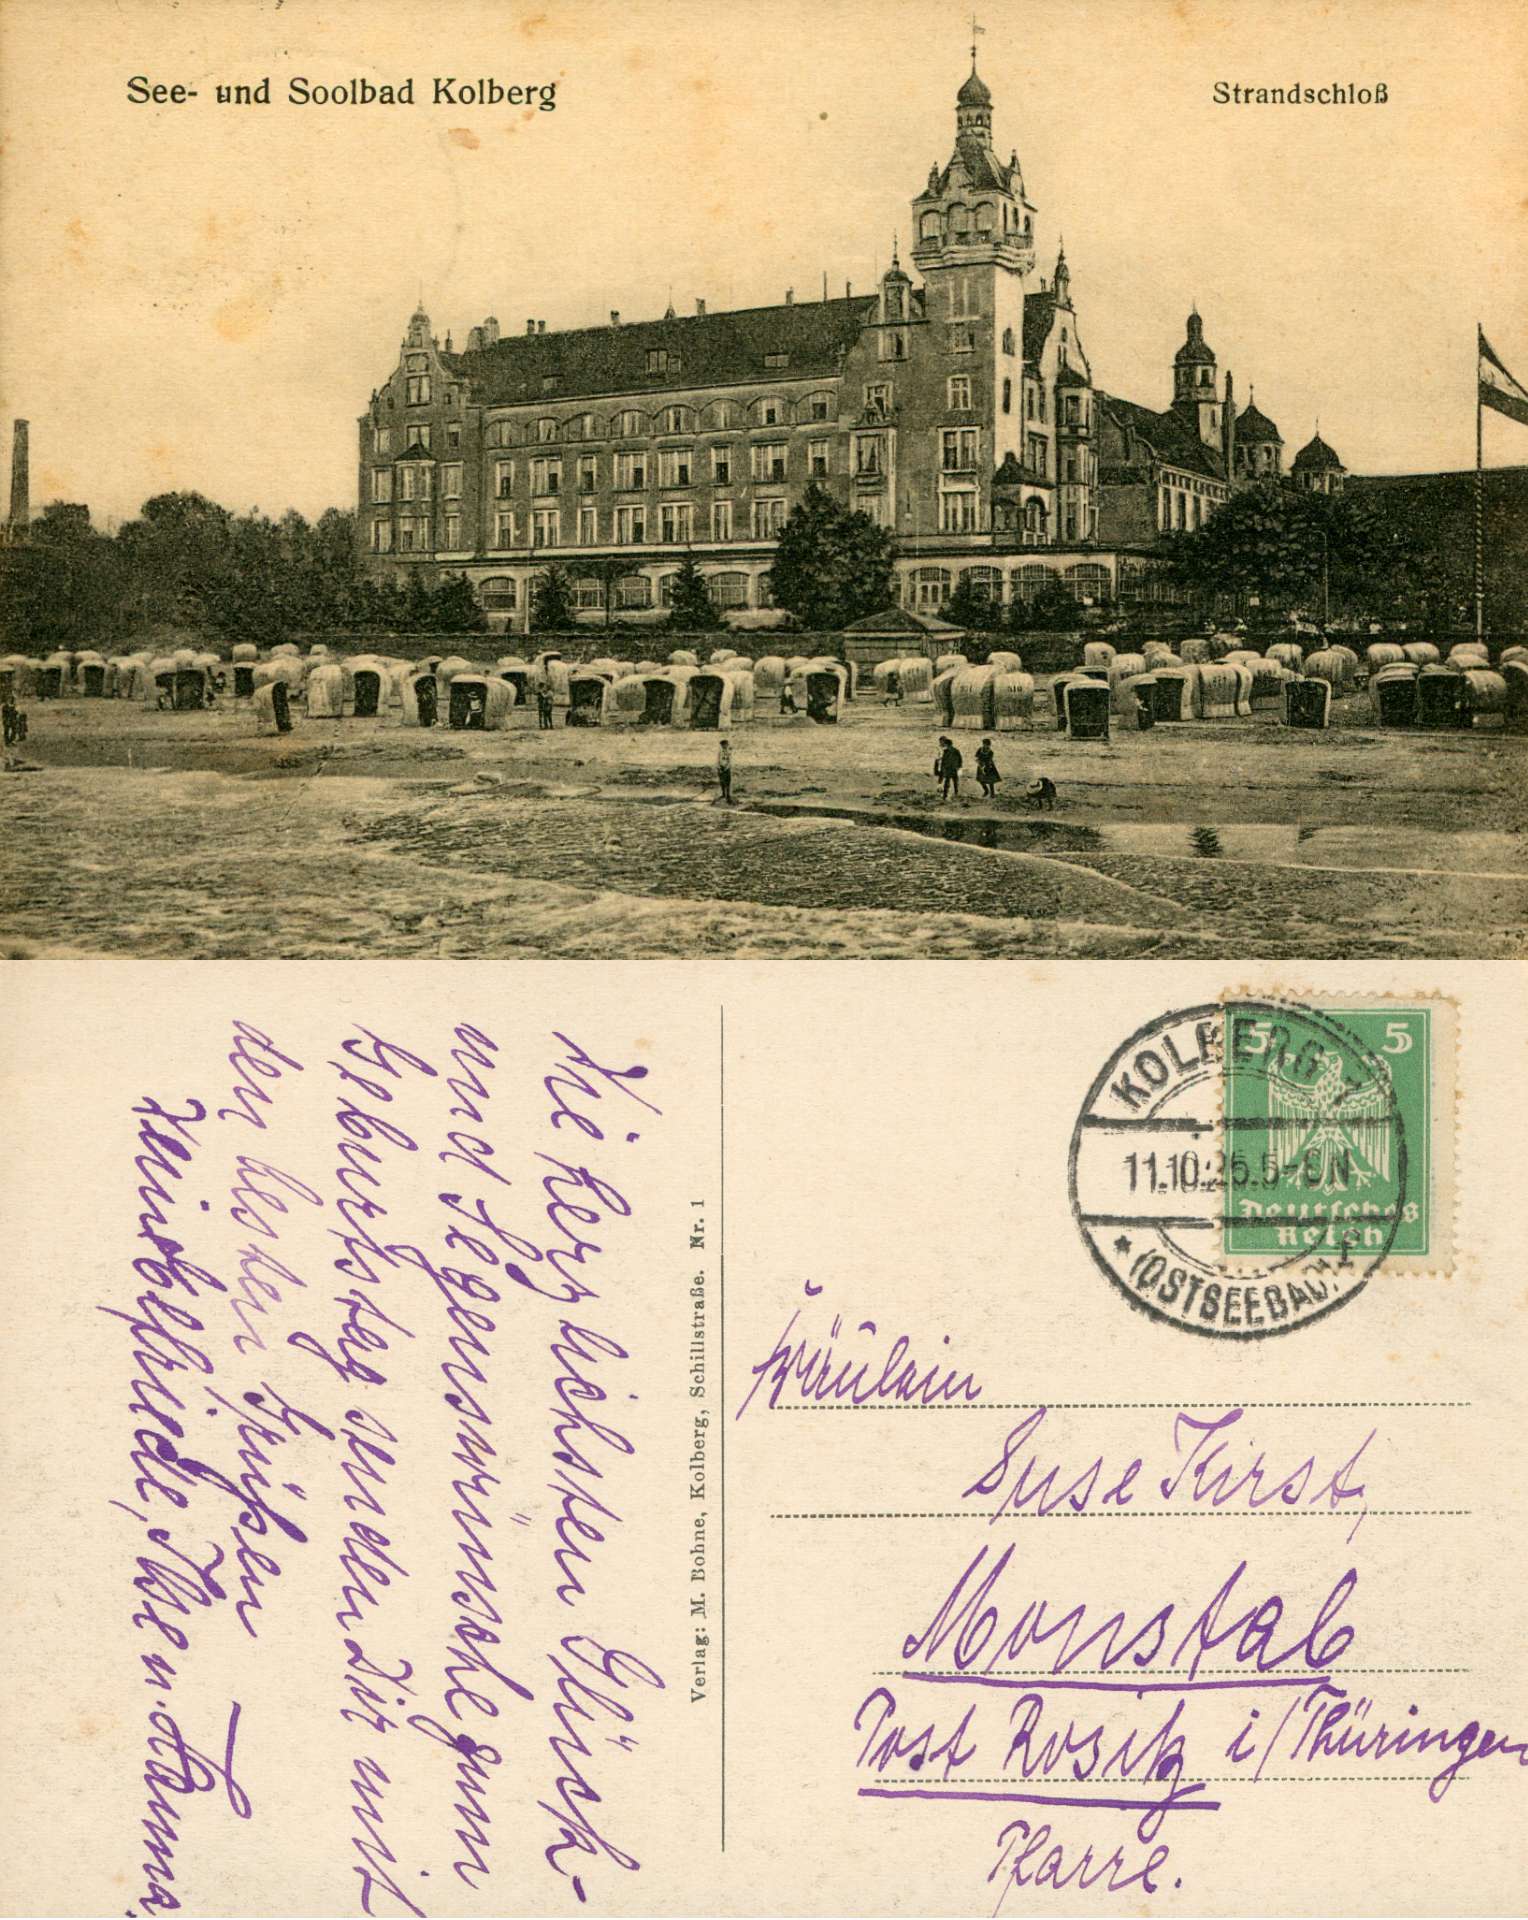 See- und Soolbad Kolberg
Strandschloß
Die herzlichsten Glück-
und Segenswünsche zum
Geburtstag senden Dir mit
den besten Grüßen
Ilse u. Hanna.
Verlag: M. Bohne, Kolberg, Schillstraße. Nr. 1
5 5
Deutsches
Reich
KOLBERG 1
11.10.25.5-6N
* (OSTSEEBAD) f
Fräulein
Suse Kirst,
Monstab
Post Rositz i/Thüringen
Pfarre.